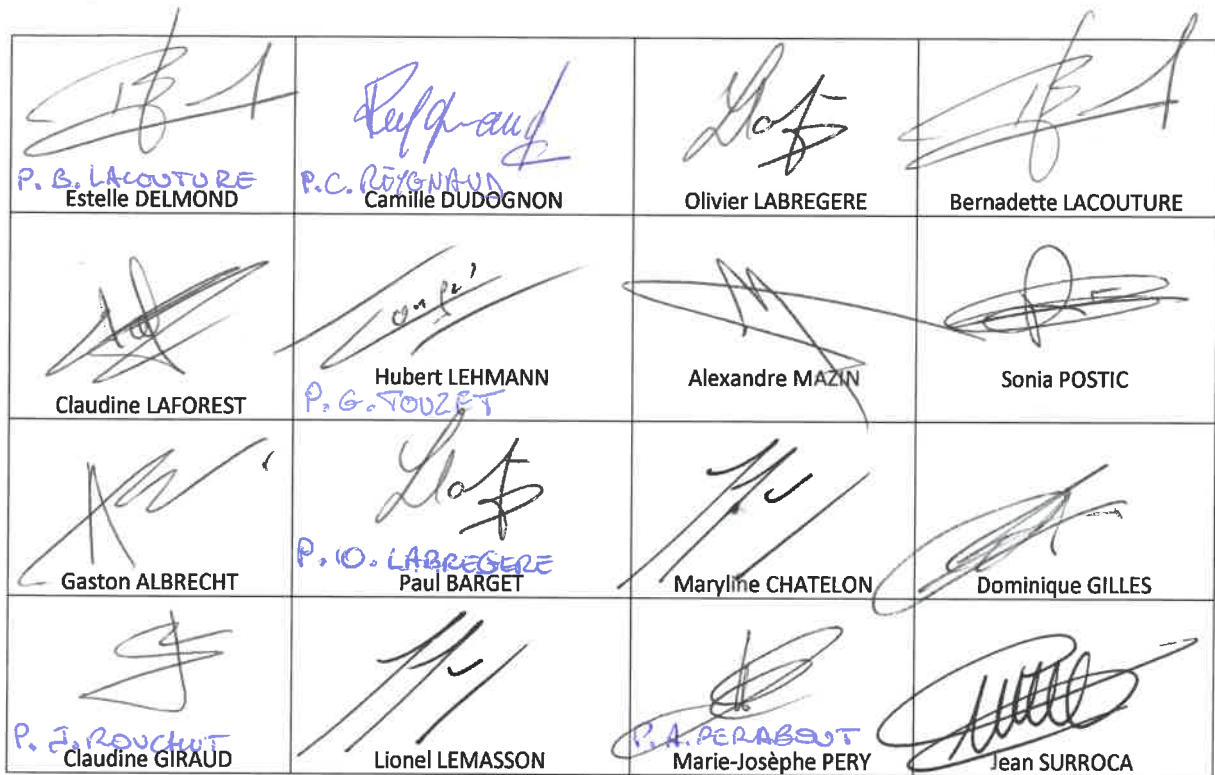 P. B. LACOUTURE
Estelle DELMOND
P.C. REYGNAUD
Camille DUDOGNON
Olivier LABREGERE
Bernadette LACOUTURE
Claudine LAFOREST
Hubert LEHMANN
P. G. TOUZET
Alexandre MAZIN
Sonia POSTIC
Gaston ALBRECHT
P. O. LABREGERE
Paul BARGET
Maryline CHATELON
Dominique GILLES
P. J. ROUCHUT
Claudine GIRAUD
Lionel LEMASSON
P. A. PERABOUT
Marie-Josèphe PERY
Jean SURROCA